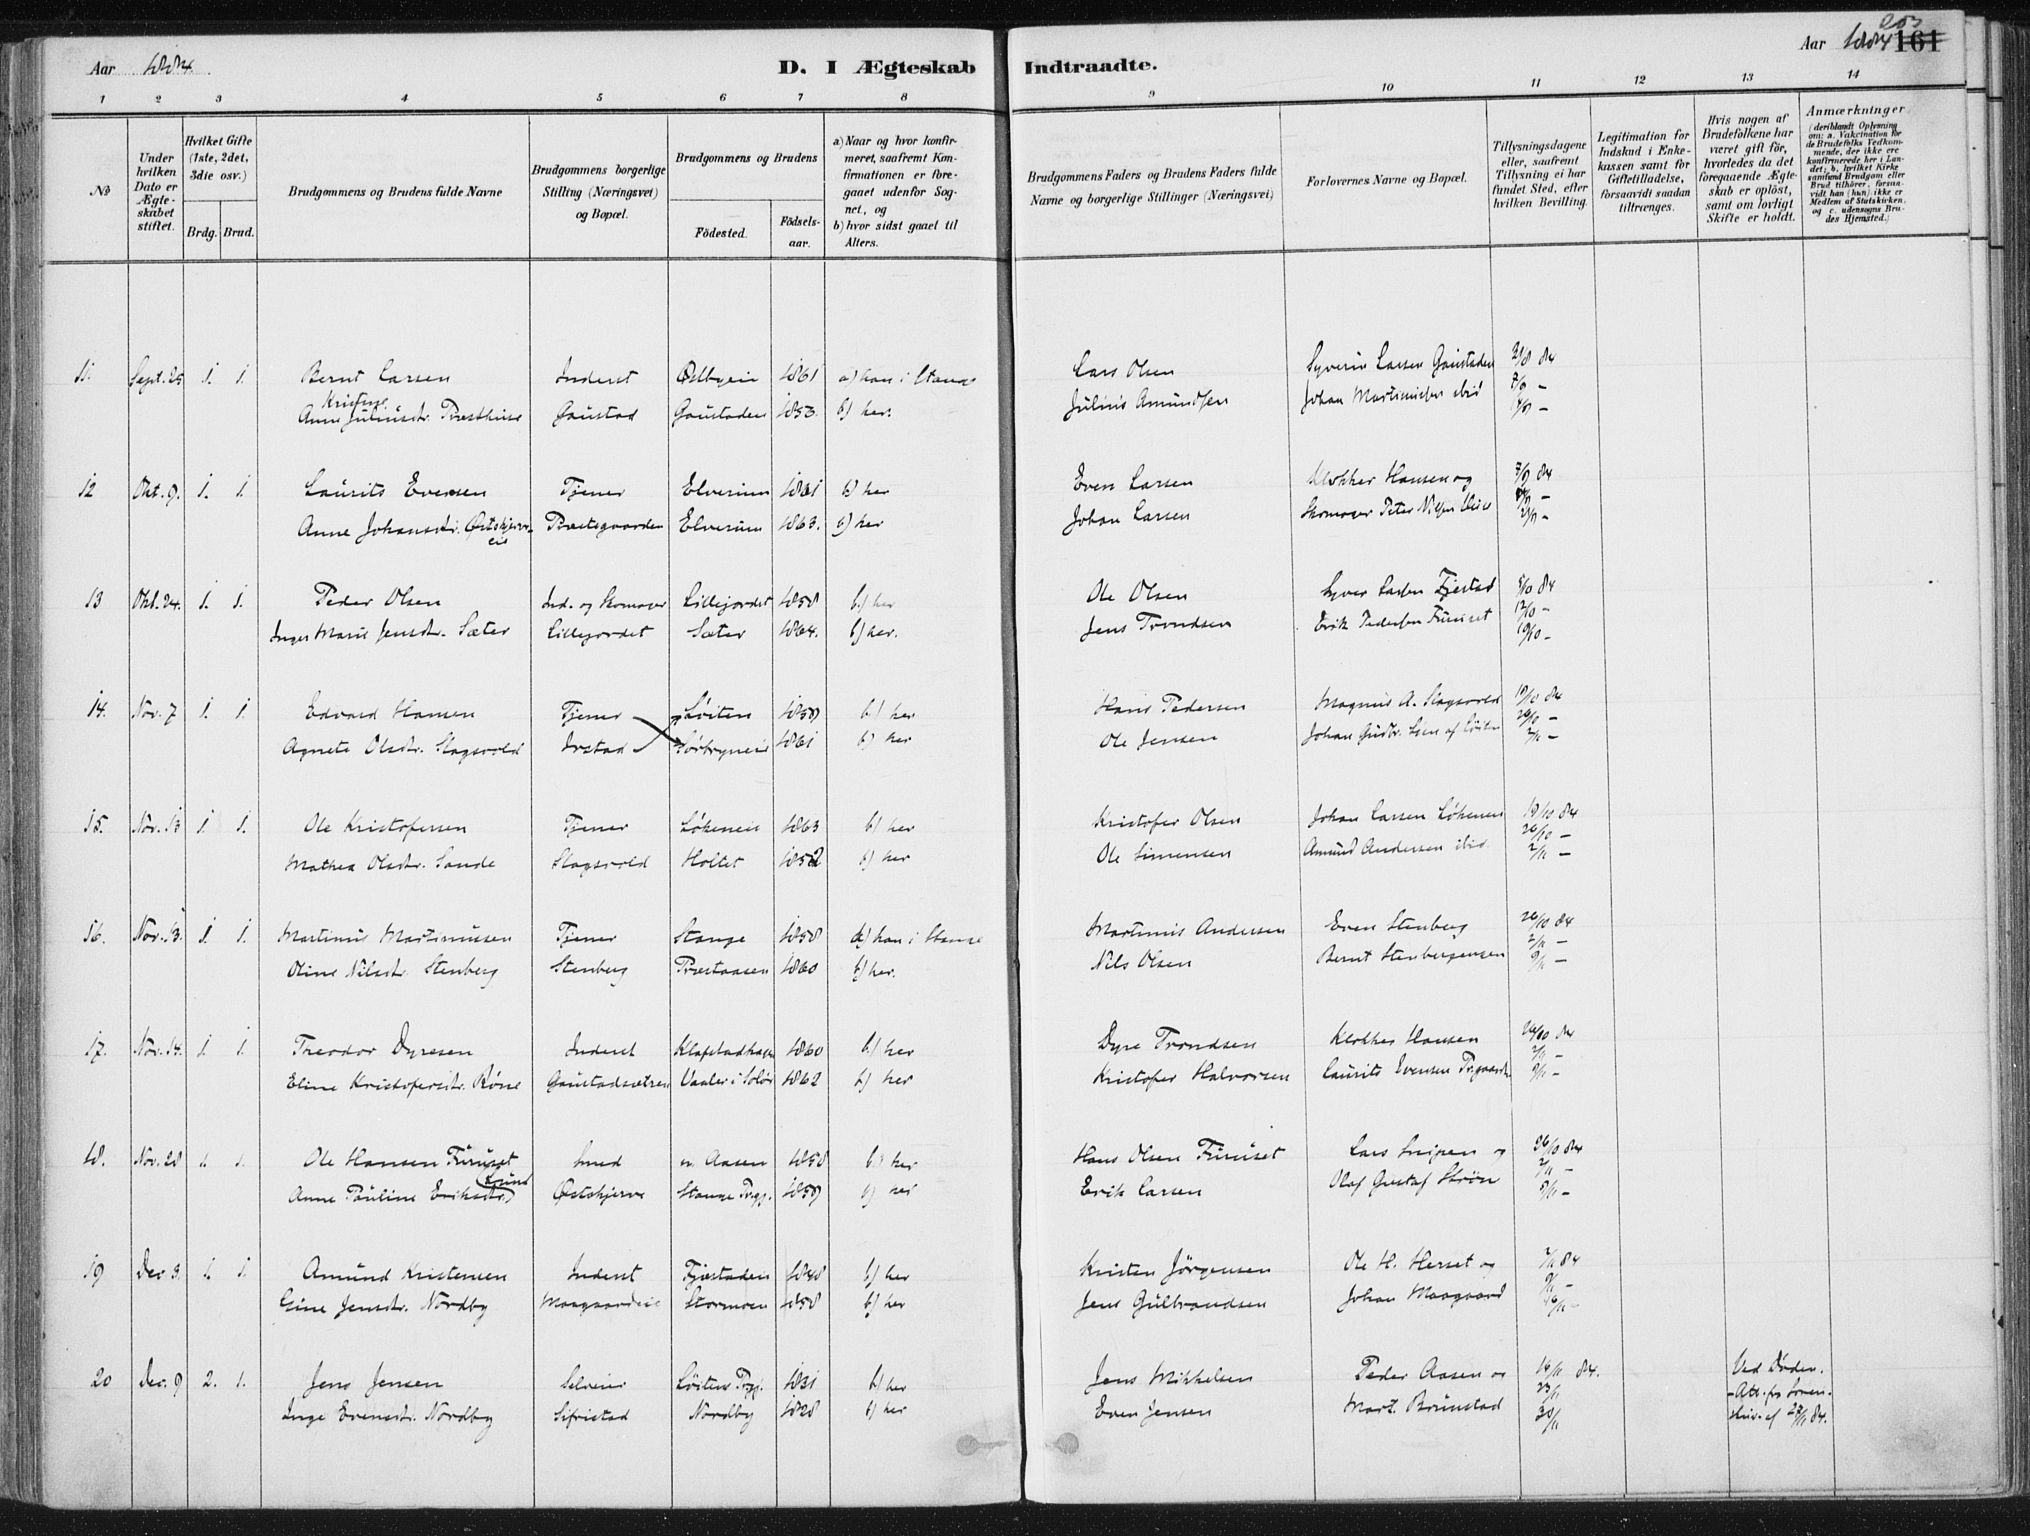 Aar 1884.
D. I Ægteskab Indtraadte.
Aar 1884 161
1 2 3 4 5 6 7 8 9 10 11 12 13 14
No
Under hvilken Dato er Ægteskabet stiftet.
Hvilket Gifte (1ste, 2det, 3die osv.)
Brdg. Brud.
Brudgommens og Brudens fulde Navne
Brudgommens borgerlige Stilling (Næringsvei) og Bopæl.
Brudgommens og Brudens
Födested. Födselsaar.
a) Naar og hvor konfirmeret, saafremt Konfirmationen er foregaaet udenfor Sognet, og b) hvor sidst gaaet til Alters.
Brudgommens Faders og Brudens Faders fulde Navne og borgerlige Stillinger (Næringsvei)
Forlovernes Navne og Bopæl.
Tillysningsdagene eller, saafremt Tillysning ei har fundet Sted, efter hvilken Bevilling.
Legitimation for Indskud i Enkekassen samt for Giftetilladelse, forsaavidt saadan tiltrænges.
Hvis nogen af Brudefolkene har været gift för, hvorledes da det foregaaende Ægteskab er oplöst, samt om lovligt Skifte er holdt.
Anmærkninger (deriblandt Oplysning om: a. Vakcination for de Brudefolks Vedkommende, der ikke ere konfirmerede her i Landet; b. hvilket Kirkesamfund Brudgom eller Brud tilhörer, forsaavidt han (hun) ikke er Medlem af Statskirken, og c. udensogns Brudes Hjemsted.)
11. Sept. 25 1. 1. Bernt Larsen Inderst Østbyeie 1861 a) han i Stange Lars Olsen Syverin Larsen Gaustaden
Kristine
Anne Juliusdr. Præsthus Gaustad Gaustaden b) her. Julius Amundsen Johan Martiniusen ibid
12 Okt. 9. 1. 1. Laurits Evensen Tjener Elverum 1861 b) her Even Larsen Klokker Hansen og 7/9 84
Anne Johansdr. Østskjørv- Præstegaarden Elverum 1863. b) her Johan Larsen Skomager Peter Nilsen
eie
13 Okt. 24. 1. 1. Peder Olsen Ind. og Skomager Lillejordet 1858 b) her Ole Olsen Syver Larsen Fjestad 5/10 84
Inger Marie Jensdr. Sæter Lillejordet Sæter 1864. b) her. Jens Trondsen Erik Pedersen Furuset 12/10 –
19/10 –
14. Nov. 7 1. 1. Edvard Hansen Tjener Løiten 1859 b) her Hans Pedersen Magnus A. Slagsvold 19/10 84
Agnete Olsdr. Slagsvold Irstad Sørbyeneie 1861 b) her Ole Jensen Johan Gudbr. Lien af Løiten 26/10 –
2/11 –
15. Nov. 13 1. 1. Ole Kristofersen Tjener Løkeneie 1863 b) her Kristofer Olsen Johan Larsen Løkenen 19/10 84
Mathea Olsdr. Sande Slagsvold Holtet 1852 b) her Ole Simensen Amund Andersen ibid. 26/10 –
2/11 –
16. Nov. 13. 1. 1. Martinus Martinusen Tjener Stange 1858 a) han i Stange Martinus Andersen Even Stenberg 26/10 84
Oline Nilsdr. Stenberg Stenberg Præstaasen 1860 b) her. Nils Olsen Bernt Stenbergensen 2/11 –
9/11 –
17. Nov. 14. 1. 1. Theodor Dyresen Inderst Klafstadhagen 1860 b) her Dyre Trondsen Klokker Hansen 26/10 84
Eline Kristofersdr. Røne Gaustadsætren Vaaler i Solør 1862 b) her Kristofer Halvorsen Laurits Evensen Prgaarden 2/11 –
9/11 –
18. Nov. 28 1. 1. Ole Hansen Furuset Smed n. Aasen 1858 b) her Hans Olsen Furuset Lars Snipen og 26/10 84
Anne Pauline Eriksdr. Østskjørv Stange Prgj. 1859 b) her Erik Larsen Olaf Gustaf Strøm 2/11 –
19 Dec 3. 1. 1. Amund Kristensen Inderst Fjæstaden 1848 b) her Kristen Jörgensen Ole H. Herset og 84
Gine Jensdr. Nordby Maagaardeie Stormoen 1858 b) her Jens Gulbrandsen Johan Maagaard 9/11 –
16/11 –
20 Dec. 9 2. 1. Jens Jensen Selveier Løitens Prgj. 1831 b) her Jens Mikkelsen Peder Aasen og 16/11 84. Ved Døden.
Inge Evensdr. Nordby Sifristad Nordby 1828 b) her Even Jensen Mart. Brunstad 23/11 – Att. fra Soren-
30/11 skriv. af 84.